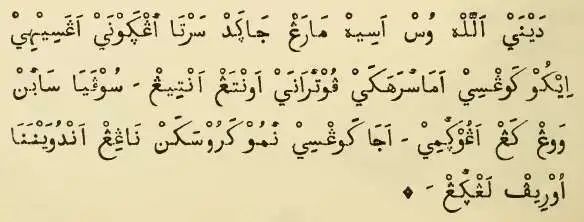 دَيْنَيْ اَللّٰهْ وُسْ اَسِيهْ مَارَڠْ جَاࢴَدْ سَرْتَا اَڠْࢴَوْنَيْ اَڠَسِيْهِيْ
اِيْكُوْ كَوڠْسِيْ اَمَاسْرَهَكَيْ ڤُوْتْرَانَيْ اَوْنتَڠْ اَنْتِيڠْ - سُوْڤَيَا سَابَنْ
وَوڠْ كَڠْ اَڠُوْࢴَمِيْ - اَجَا كَوڠْسِيْ نَمُوْ كَرُوْسَكَنْ نَاڠِڠْ اَنْدُوَيْنَنَا
اُوْرِيڤْ لَڠْࢴَڠْ - ◆